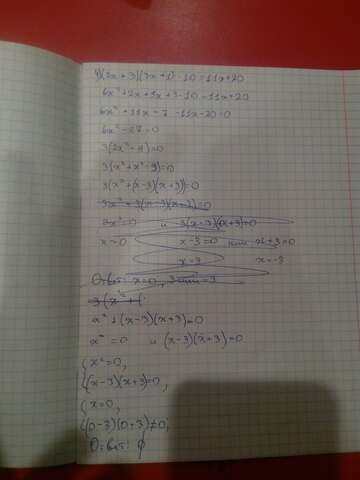 4) (2x + 3)(3x + 1) - 10 = 11x + 20
6x² + 2x + 9x + 3 - 10 = 11x + 20
6x² + 11x - 7 - 11x - 20 = 0
6x² - 27 = 0
3(2x² - 9) = 0
3(x² + x² - 9) = 0
3(x² + (x - 3)(x + 3)) = 0
3x² + 3(x - 3)(x + 3) = 0
3x² = 0 и 3(x - 3)(x + 3) = 0
x = 0 x - 3 = 0 или x + 3 = 0
x = 3 x = -3
Ответ: x = 0, 3 или -3
3(x² + (
x² + (x - 3)(x + 3) = 0
x² = 0 и (x - 3)(x + 3) = 0
{ x² = 0,
{ (x - 3)(x + 3) = 0,
{ x = 0,
{ (0 - 3)(0 + 3) ≠ 0,
Ответ: ∅